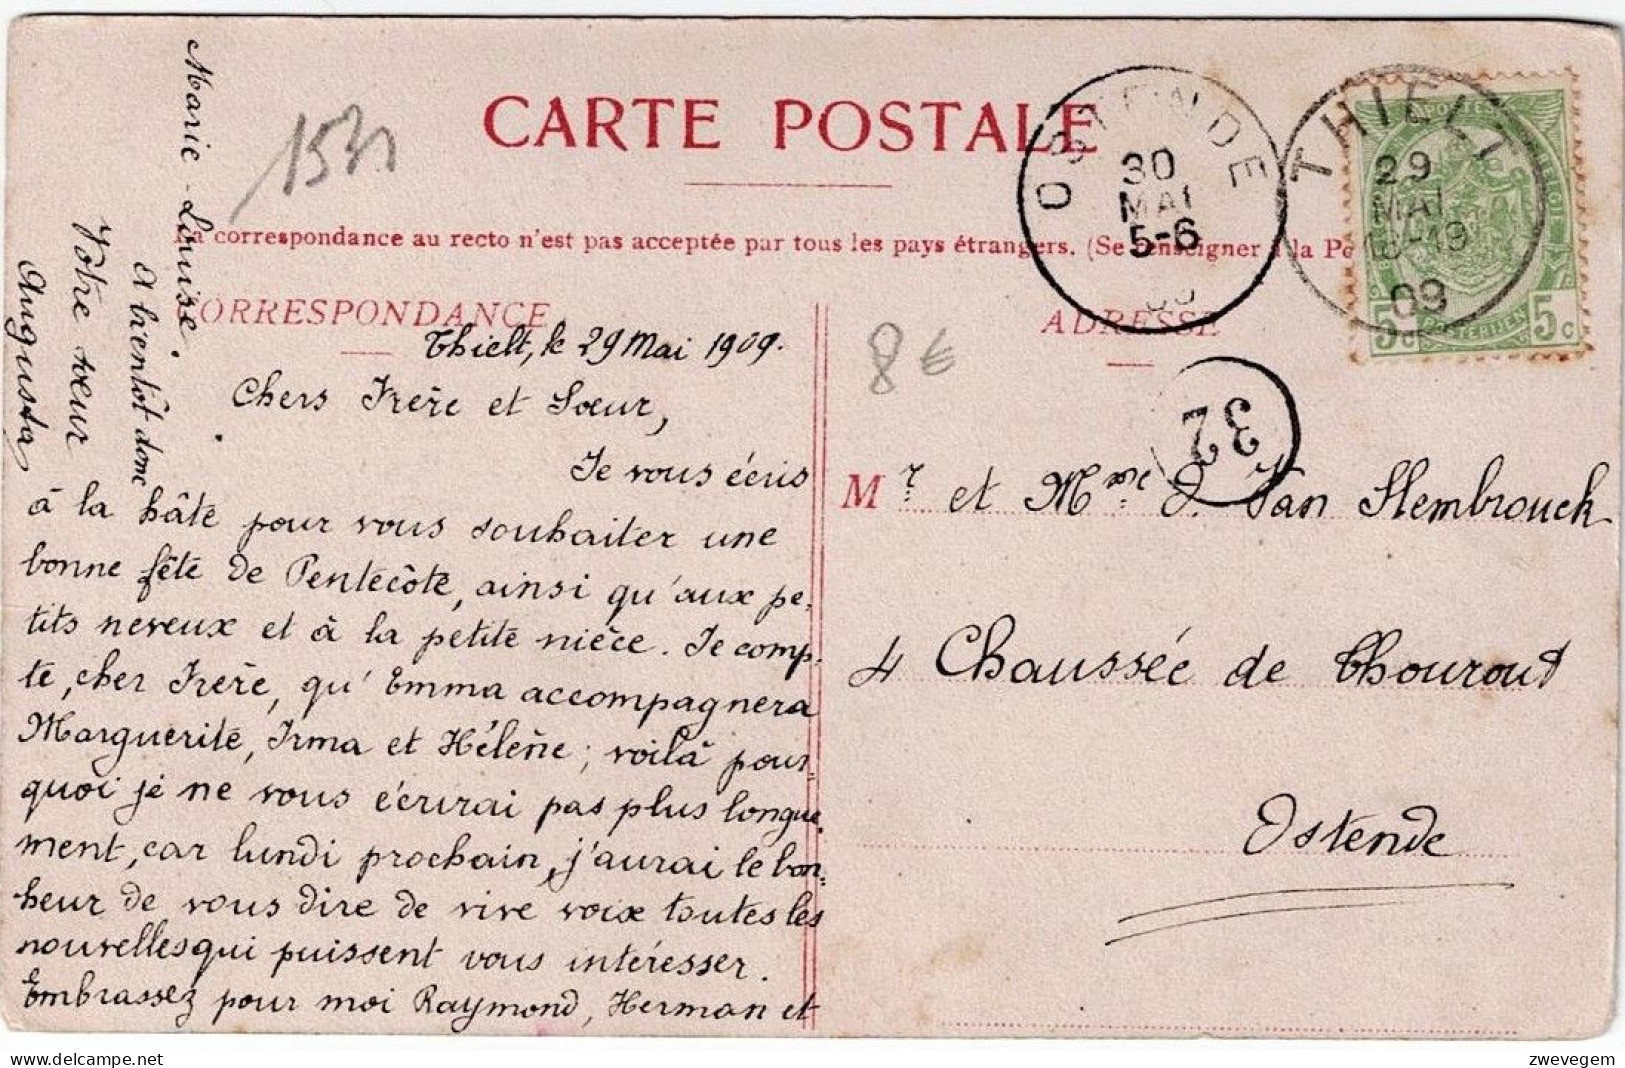 CARTE POSTALE
153
La correspondance au recto n'est pas acceptée par tous les pays étrangers. (Se renseigner à la Po
CORRESPONDANCE
Thielt, le 29 Mai 1909.
Chers Frère et Soeur,
Je vous écris
à la hâte pour vous souhaiter une
bonne fête de Pentecôte, ainsi qu'aux pe-
tits neveux et à la petite nièce. Je comp-
te, cher Frère, qu'Emma accompagnera
Marguerite, Irma et Hélène; voilà pour-
quoi je ne vous écrirai pas plus longue-
ment, car lundi prochain, j'aurai le bon-
heur de vous dire de vive voix toutes les
nouvelles qui puissent vous intéresser.
Embrassez pour moi Raymond, Herman et
Marie-Louise.
A bientôt donc
Votre soeur
Augusta
OSTENDE
30
MAI
5-6
THIELT
29
MAI
18-19
09
POSTES
BELGIQUE
POSTERIJEN
5c
5c
8 €
ADRESSE
32
Mr et Mme D. Van Slembrouck
4 Chaussée de Thourout
Ostende
delcampe.net
zwevegem